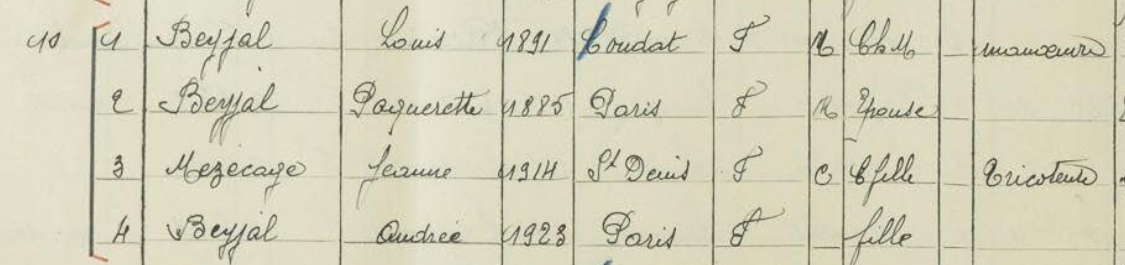 40 1 Beyjal Louis 1891 Coudat F M Ch M _ manoeuvre
2 Beyjal Paquerette 1885 Paris F M Epouse _
3 Mezecaze Jeanne 1914 St Denis F C B fille _ Tricoteuse
4 Beyjal Andrée 1923 Paris F _ fille